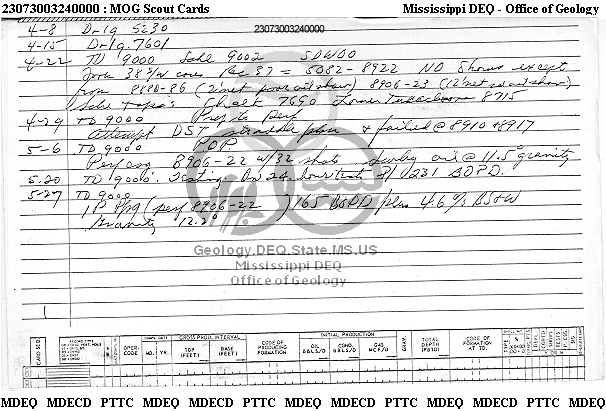 23073003240000 : MOG Scout Cards Mississippi DEQ - Office of Geology
23073003240000
4-8 Drlg 5230
4-15 Drlg. 7601
4-22 TD 9000 Schl 9002 SDWOO
Took 38 S/W cores Rec 37 = 5082-8922 NO Shows except
from 8880-86 (2' net poor oil show) 8906-23 (12' net oil show)
Schl Tops: Chalk 7690 Lower Tuscaloosa 8715
4-29 TD 9000 Prep to Perf
Attempt DST straddle & failed @ 8910 & 8917
5-6 TD 9000 POP
Perf csg 8906-22 w/32 shots oil @ 11.5° gravity
5-20 TD 9000 Testing On 24 hour test P/231 BOPD.
5-27 TD 9000
IP Ppg (perf 8906-22 ) 165 BOPD plus 46% BS&W
Gravity 12.2°
Geology.DEQ.State.MS.US
Mississippi DEQ
Office of Geology
CARD SEQ.
OPER-CODE
COMPL. DATE
MO. YR.
GROSS PROD. INTERVAL
TOP (FEET)
BASE (FEET)
CODE OF PRODUCING FORMATION
INITIAL PRODUCTION
OIL BBLS/D
COND. BBLS/D
GAS MCF/D
GRAV.
TOTAL DEPTH (PBTD)
CODE OF FORMATION AT TD.
MDEQ MDECD PTTC MDEQ MDECD PTTC MDEQ MDECD PTTC MDEQ MDECD PTTC MDEQ